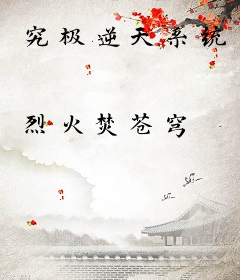 究极逆天系统
烈火焚苍穹